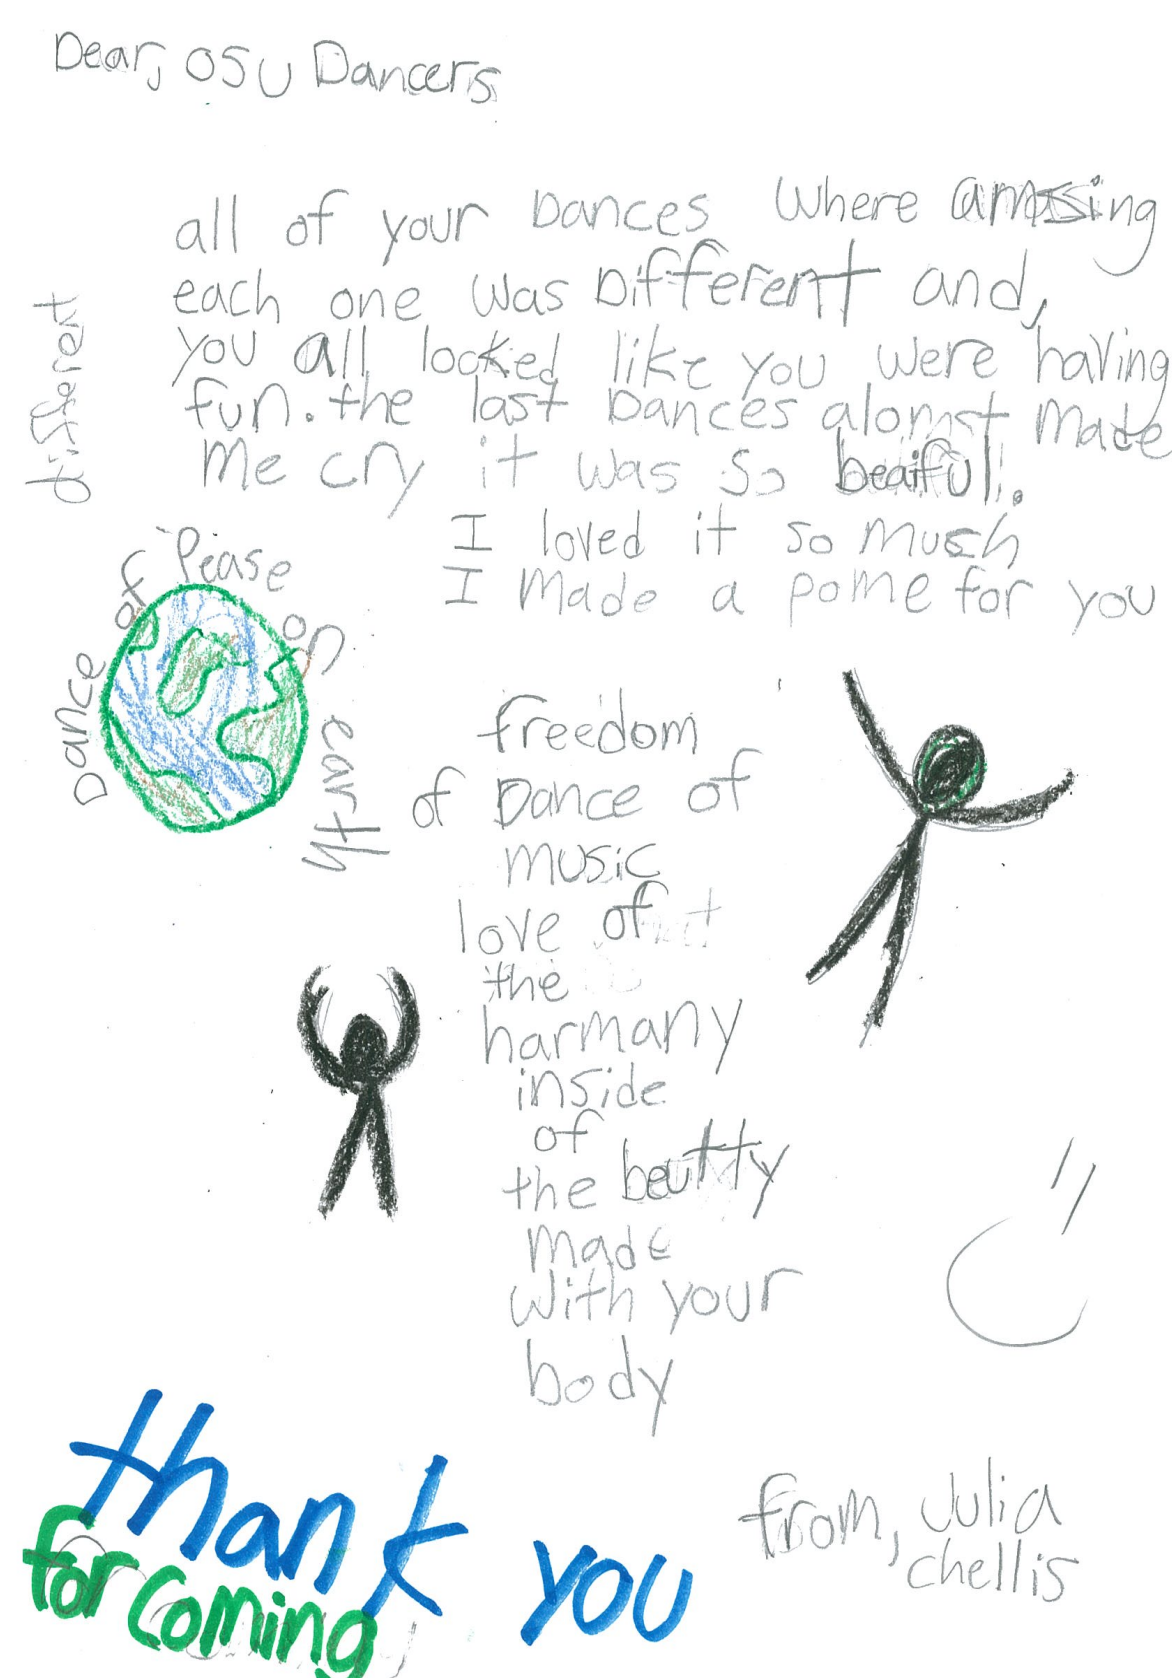 Dear, OSU Dancers
all of your Dances Where amassing
each one was Different and,
you all locked like you were having
fun. the last Dances alomst made
me cry it was so beaiful.
I loved it so much
I made a pome for you
different
Dance of Pease on earth
freedom
of Dance of
music
love of
the
harmany
inside
of
the beutty
made
with your
body
from, Julia
chellis
thank you
for coming